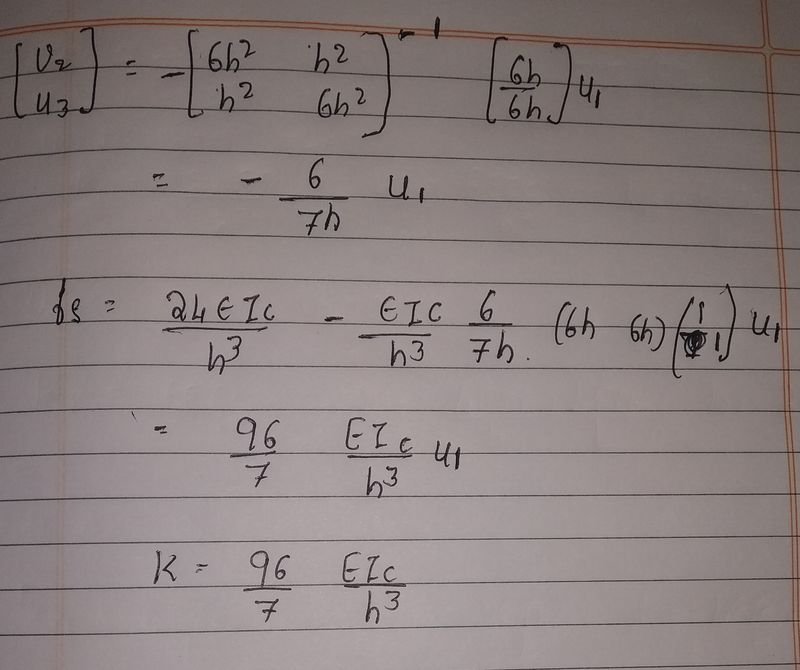 [U2 U3] = - [6h² h² h² 6h²]⁻¹ [6h/6h] u₁
= - 6/7h u₁
fs = 24EIc/h³ - EIc/h³ 6/7h. (6h 6h) (1/1) u₁
= 96/7 EIc/h³ u₁
K = 96/7 EIc/h³